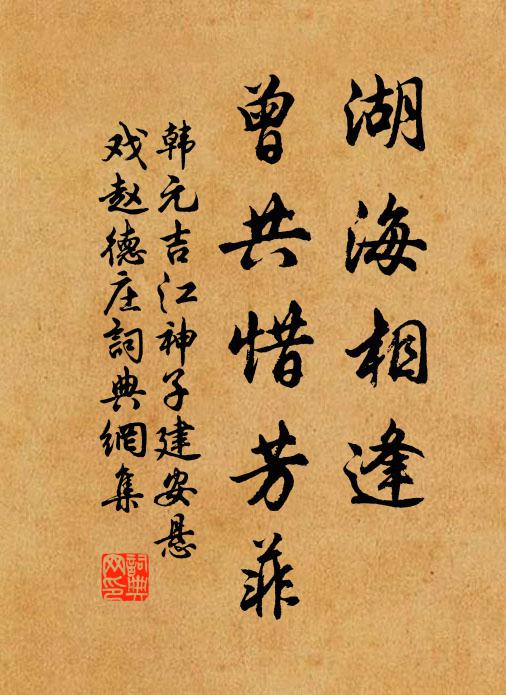 湖海相逢
曾共惜芳菲
韩元吉江神子建安县
戏赵德庄詞典網集
詞典
网印